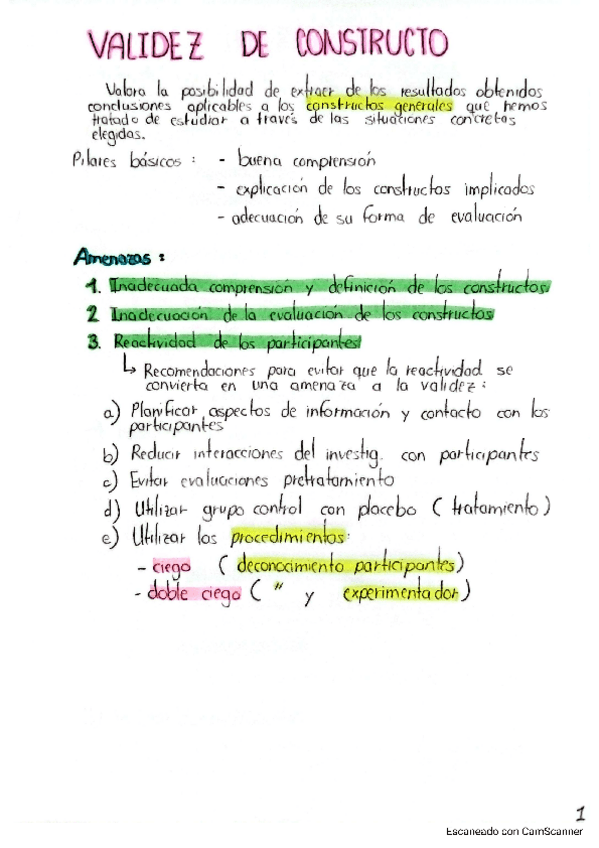 VALIDEZ DE CONSTRUCTO
Valora la posibilidad de extraer de los resultados obtenidos
conclusiones aplicables a los constructos generales que hemos
tratado de estudiar a través de las situaciones concretas
elegidas.
Pilares básicos : - buena comprensión
- explicación de los constructos implicados
- adecuación de su forma de evaluación
Amenazas :
1. Inadecuada comprensión y definición de los constructos
2 Inadecuación de la evaluación de los constructos
3. Reactividad de los participantes
↳ Recomendaciones para evitar que la reactividad se
convierta en una amenaza a la validez :
a) Planificar aspectos de información y contacto con los
participantes
b) Reducir interacciones del investig. con participantes
c) Evitar evaluaciones pretratamiento
d) Utilizar grupo control con placebo ( tratamiento )
e) Utilizar los procedimientos:
- ciego ( deconocimiento participantes )
- doble ciego ( " y experimentador )
1
Escaneado con CamScanner